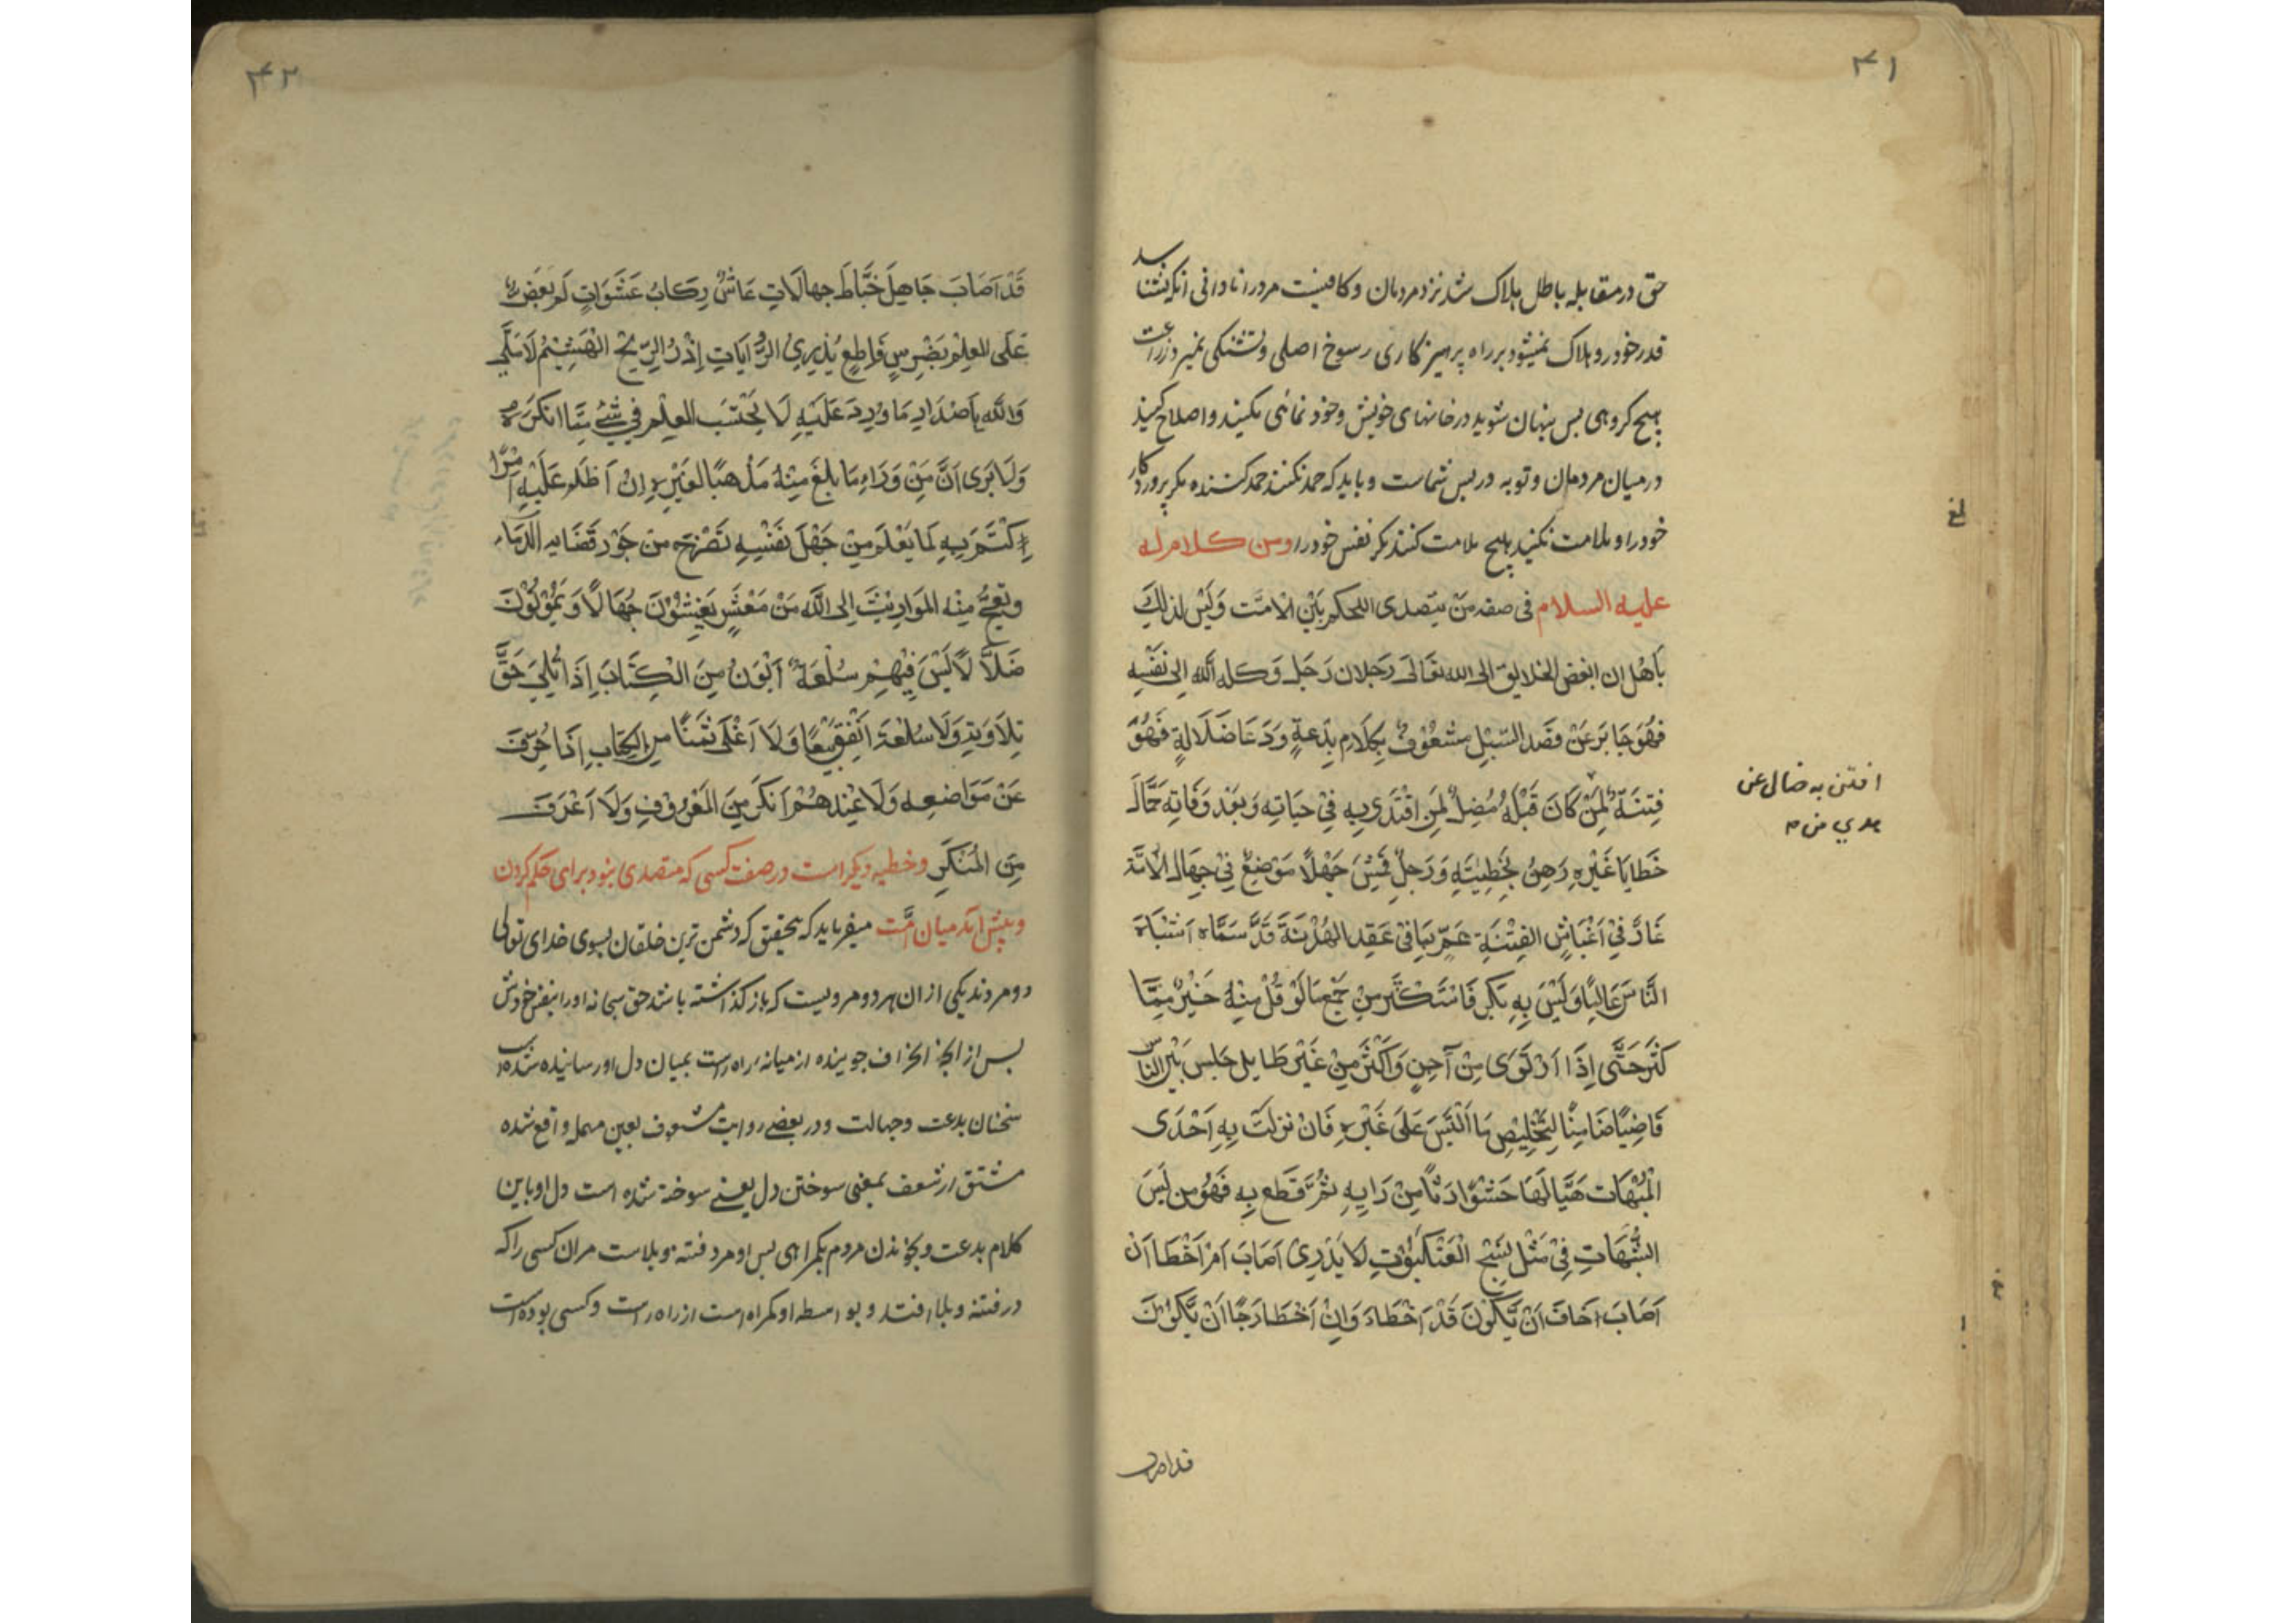 ۴۱
حق در مقابله باطل هلاک شد نزد مردمان و کافیست مرد را نادانی انکه نشناسد
قدر خود را و هلاک نمیشود بر راه پرهیز کاری رسوخ اصلی و تشنکی نمیبرد زراعت
هیچ کروهی بس پنهان شوید در خانهای خویش و خود نمائی مکنید و اصلاح کنید
در میان مردمان و توبه در بس شماست و باید که حمد نکنند حمد کننده مکر پروردکار
خود را و ملامت نکنید هیچ ملامت کننده مکر نفس خود را ومن کلام له
علیه السلام فی صفه مَنْ یتصدی اللحکم بَیْنَ الاُمَّت وَلَیْسَ لِذلِكَ
بَاَهْل اِن ابغض الخلایق الی الله تعَالیَ رَجلان رَجل وَکله اَلله اِلی نَفْسِهِ
فَهُوَ جَابَر عَنْ قَصَد السَّبِیْل مشْعُوْفٌ بِکلَامِ بِدْعةٍ وَدَعَا ضَلَالةٍ فَهُوَ
فِتنَةٌ لِمَنْ کَانَ قَبْلَهُ مُضِلٌ لِمَنِ اقْتَدَی بِهِ فِیْ حَیَاتِه وَبَعْد وَفَاتِهِ حَمَّالَ
خَطَایَا غَیْرِهِ رَهِنٌ بِخَطِیْئَتِهِ وَرَجلٌ قَمَشَ جَهْلًا مَوْضِعٌ فِیْ جِهَالِ الاُمَّة
عَادَ فِیْ اَغْبَاشِ الفِتْنَةِ عَمٍ بِمَا فِیْ عَقِدِ الهُدْنَةِ قَدْ سَمَّاه اَشْبَاه
النَّاسِ عَالِمًا وَلَیْسَ بِهِ بَکَّرَ فَاسْتَکْثَرَ مِنْ جَمْعِ مَا لَوْ قُلَّ مِنْهُ خَیْرٌ مِمَّا
کَثَر حَتَّی اِذَا ارْتَوَی مِنْ آجِنٍ وَاَکْثَرَ مِنْ غَیْرِ طَایل جَلَسَ بَیْنَ النَّاسِ
قَاضِیًا ضَامِنًا لِتَخْلِیْصِ مَا الْتَبَسَ عَلَی غَیْرِهِ فَاِنْ نزلَتْ بِهِ اِحْدَی
الْمُبْهَمَات هَیَّا لَهَا حَشْوًا رَثًّا مِنْ رَایِهِ ثُمَّ قَطَع بِهِ فَهُوَ مِن لَبْسَ
الشُّبُهَاتِ فِیْ مَثْل نَسْجِ الْعَنْکَبُوْتِ لَا یَدْرِیْ اَصَابَ اَمْ اَخْطَا اِنْ
اَصَابَ اخَافَ اَنْ یَّکُوْنَ قَدْ اَخْطَاءَ وَاِنْ اَخْطَا رَجَا اَنْ یَّکُوْنَ
افتتن به ضال عن
هدی من م
قد اصاب
۴۲
قَدْ اَصَابَ جَاهِلَ خَبَّاطَ جهَالَاتٍ عَاشٌ رِکَابُ عَشَوَاتٍ لَمْ یَعَضّ
عَلَی العِلْمِ بِضِرْسٍ قَاطِعٍ یُذْرِیْ الرِّوَایَاتِ اِذْرَ الرِّیْحِ الْهَشِیْمَ لَا مَلِیٌّ
وَاللّه بِاَصْدَارِ مَا وُرِدَ عَلَیْهِ لَا یَحْتَسَب العِلْم فِی شَیْءٍ مِمَّا انکَرَهُ
وَلَا یَرَی اَنَّ مِنْ وَرَاءِ مَا بَلَغَ مِنْهُ مَذْهَبًا لِغَیْرِهِ اِنْ اَظْلَم عَلَیْهِ اَمْرٌ
اِکْتَتَمَ بِهِ لِمَا یَعْلَمُ مِنْ جَهْلِ نَفْسِهِ تَصْرُخ مِنْ جَوْرِ قَضَایِهِ الدِّمَاء
وَتَعِجُّ مِنْهُ المَوَارِیْثُ اِلَی اللّه مَنْ مَعْشَرٍ یَعِیْشُوْنَ جُهَّالًا وَیَمُوْتُوْنَ
ضَلَّالًا لَیْسَ فِیْهِمْ سِلْعَةٌ اَبْوَرُ مِنَ الْکِتَابَ اِذَا تُلِیَ حَقَّ
تِلَاوَتِهِ وَلَا سِلْعَة اَنْفَقَ بَیْعًا وَلَا اَغْلَی ثَمَنًا مِنَ الکِتَابِ اِذَا حُرِّفَ
عَنْ مَوَاضِعِه وَلَا عِنْدَهُمْ اَنکَرَ مِنَ المَعْرُوْفِ وَلَا اَعْرَفَ
مِنَ المُنْکَرِ وخطبه دیکر است در صفت کسی که متصدی بنود برای حکم کردن
و پیش امد میان امَّت میفرماید که بتحقیق که دشمن ترین خلقان بسوی خدای تعالی
دو مردند یکی از ان هر دو مردیست که باز کذاشته باشد حق سبحانه او را بنفس خودش
بس از انحراف جوینده از میانه راه راست بمیان دل او رسانیده شده
سخنان بدعت و جهالت و در بعضے روایت مشعوف بعین مهمله واقع شده
مشتق از شعف بمعنی سوختن دل یعنے سوخته شده است دل او باین
کلام بدعت و بخواندن مردم بکمراهی بس او مرد فتنه و بلاست مران کسی را که
در فتنه و بلا افتد و بواسطه او کمراه است از راه راست و کسی بوده است